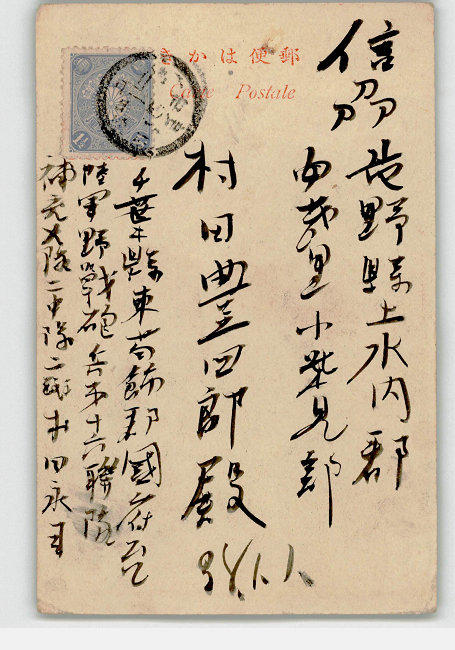 郵便はかき
Carte Postale
信刕
長野縣上水内郡
安茂里小柴見部
村田豊四郎殿
千葉縣東葛飾郡國府台
陸軍野戰砲兵第十六聯隊
補充大隊二中隊二班村田永